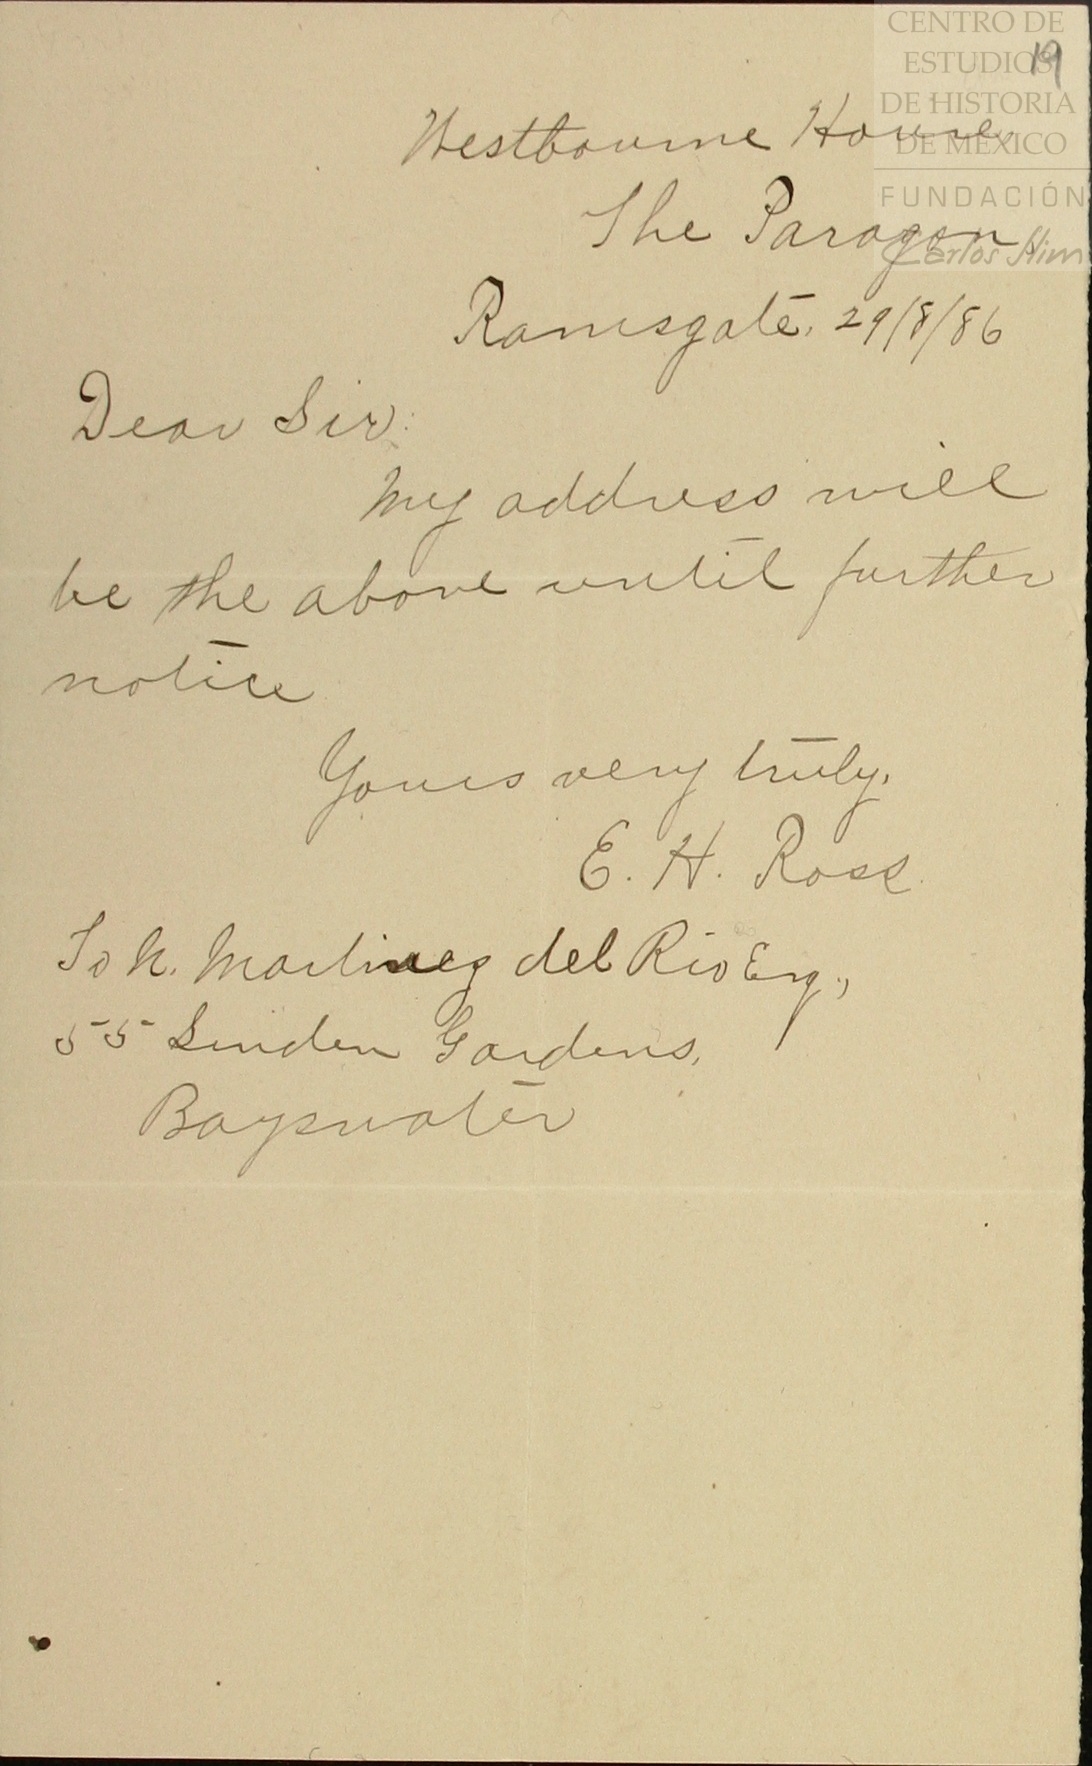 CENTRO DE
ESTUDIOS
DE HISTORIA
DE MÉXICO
FUNDACIÓN
Carlos Slim
19
Westbourne House,
The Paragon,
Ramsgate, 29/8/86
Dear Sir:
My address will
be the above until further
notice
Yours very truly,
E. H. Ross.
To N. Martinez del Rio Esq.,
55 Linden Gardens,
Bayswater